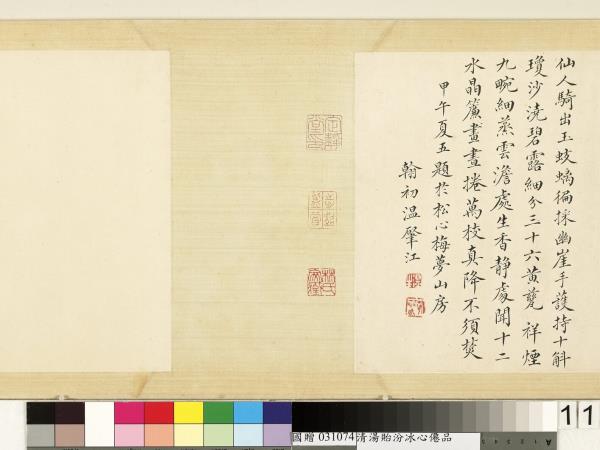 仙人騎出玉蛟螭徧採幽崖手護持十斛
瓊沙澆碧露細分三十六黃甆祥煙
九畹細蒸雲澹處生香靜處聞十二
水晶簾畫晝捲萬枝真降不須焚
甲午夏五題於松心梅夢山房
翰初溫肇江
定靜堂印
國贈 031074 清湯貽汾冰心僊品
11